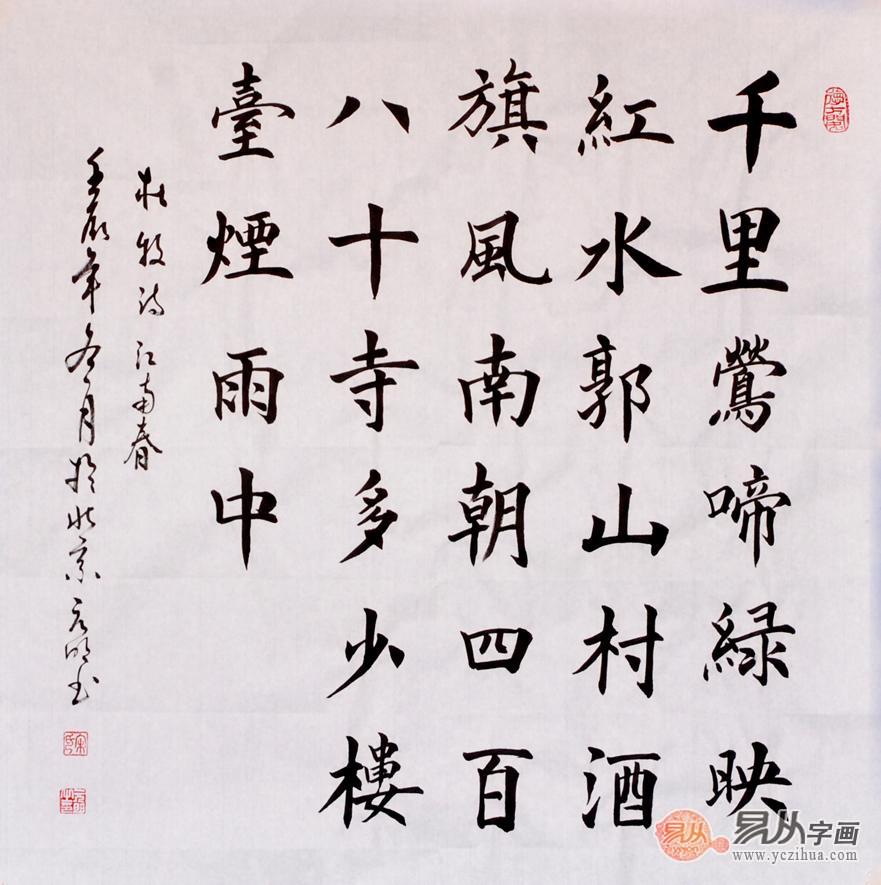 千里鶯啼緑映
紅水郭山村酒
旗風南朝四百
八十寺多少樓
臺煙雨中
杜牧诗江南春
壬辰年冬月於北京元明书
易从字画
www.yczihua.com